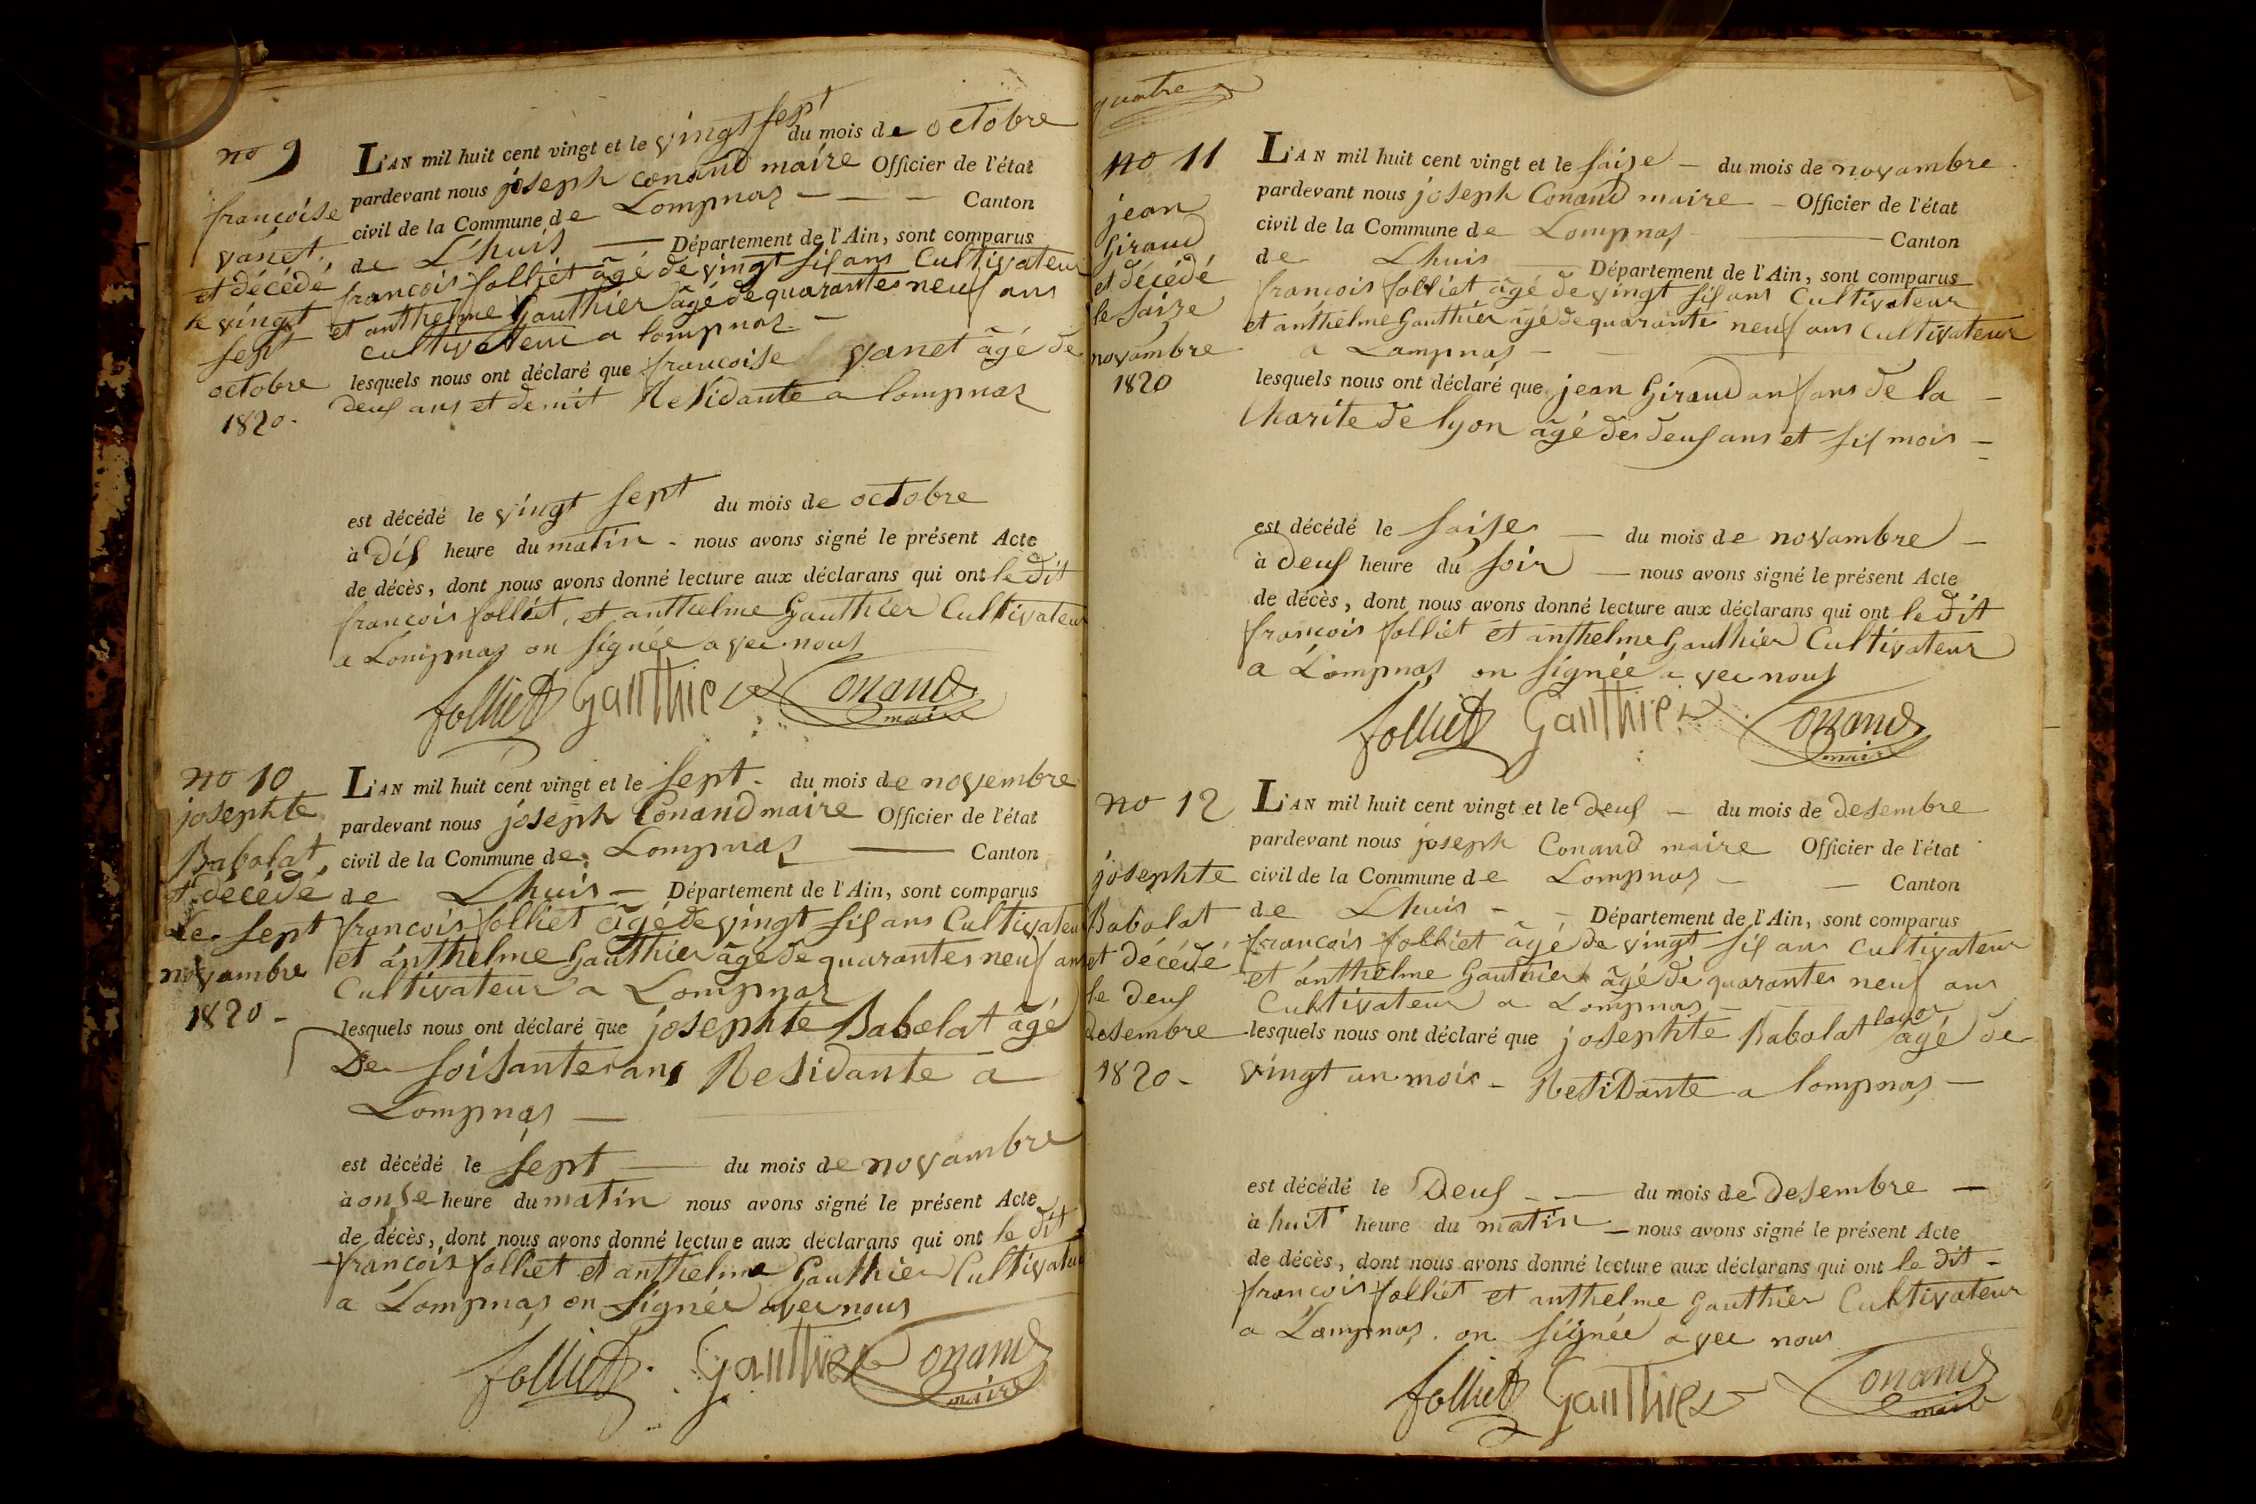 no 9
françoise
vanet
et décédé
le vingt
sept
octobre
1820.
L'AN mil huit cent vingt et le vingt sept du mois de octobre
pardevant nous joseph conand maire Officier de l'état
civil de la Commune de Lompnas Canton
de Lhuis Département de l'Ain, sont comparus
françois folliet âgé de vingt sis ans Cultivateur
et anthelme Gauthier âgé de quarantes neuf ans
cultivateur a lompnas
lesquels nous ont déclaré que françoise vanet âgé de
deus ans et demit Residante a lompnas
est décédé le vingt sept du mois de octobre
à dis heure du matin nous avons signé le présent Acte
de décès, dont nous avons donné lecture aux déclarans qui ont le dit
françois folliet, et anthelme Gauthier Cultivateur
a Lompnas on signée avec nous
folliet Gauthier Conand
maire
no 10
josephte
Babolat
et décédé
le sept
novambre
1820
L'AN mil huit cent vingt et le sept du mois de novembre
pardevant nous joseph Conand maire Officier de l'état
civil de la Commune de Lompnas Canton
de Lhuis Département de l'Ain, sont comparus
françois folliet âgé de vingt sis ans Cultivateur
et anthelme Gauthier âgé de quarantes neuf ans
Cultivateur a Lompnas
lesquels nous ont déclaré que josephte Babolat âgé
De soisantes ans Residante a
Lompnas
est décédé le sept du mois de novambre
à onse heure du matin nous avons signé le présent Acte
de décès, dont nous avons donné lecture aux déclarans qui ont le dit
françois folliet et anthelme Gauthier Cultivateur
a Lompnas on signée avec nous
folliet Gauthier Conand
maire
quatre
no 11
jean
Giraud
et décédé
le saize
novambre
1820
L'AN mil huit cent vingt et le saise du mois de novambre
pardevant nous joseph Conand maire Officier de l'état
civil de la Commune de Lompnas Canton
de Lhuis Département de l'Ain, sont comparus
françois folliet âgé de vingt sis ans Cultivateur
et anthelme Gauthier âgé de quarante neuf ans Cultivateur
a Lampnas
lesquels nous ont déclaré que jean Giraud anfans de la
Charite de lyon âgé des deus ans et sis mois
est décédé le saise du mois de novambre
à deus heure du soir nous avons signé le présent Acte
de décès, dont nous avons donné lecture aux déclarans qui ont le dit
françois folliet et anthelme Gauthier Cultivateur
a Lompnas on signée avec nous
folliet Gauthier Conand
maire
no 12
josephte
Babolat
et décédé
le deus
desembre
1820
L'AN mil huit cent vingt et le deus du mois de desembre
pardevant nous joseph Conand maire Officier de l'état
civil de la Commune de Lompnas Canton
de Lhuis Département de l'Ain, sont comparus
françois folliet âgé de vingt sis ans cultivateur
et anthelme Gauthier âgé de quarantes neuf ans
Cultivateur a Lompnas
lesquels nous ont déclaré que josephte Babolat âgé de
vingt un mois Residante a lompnas
est décédé le Deus du mois de desembre
à huit heure du matin nous avons signé le présent Acte
de décès, dont nous avons donné lecture aux déclarans qui ont le dit
françois folliet et anthelme Gauthier Cultivateur
a Lampnas on signée avec nous
folliet Gauthier Conand
maire